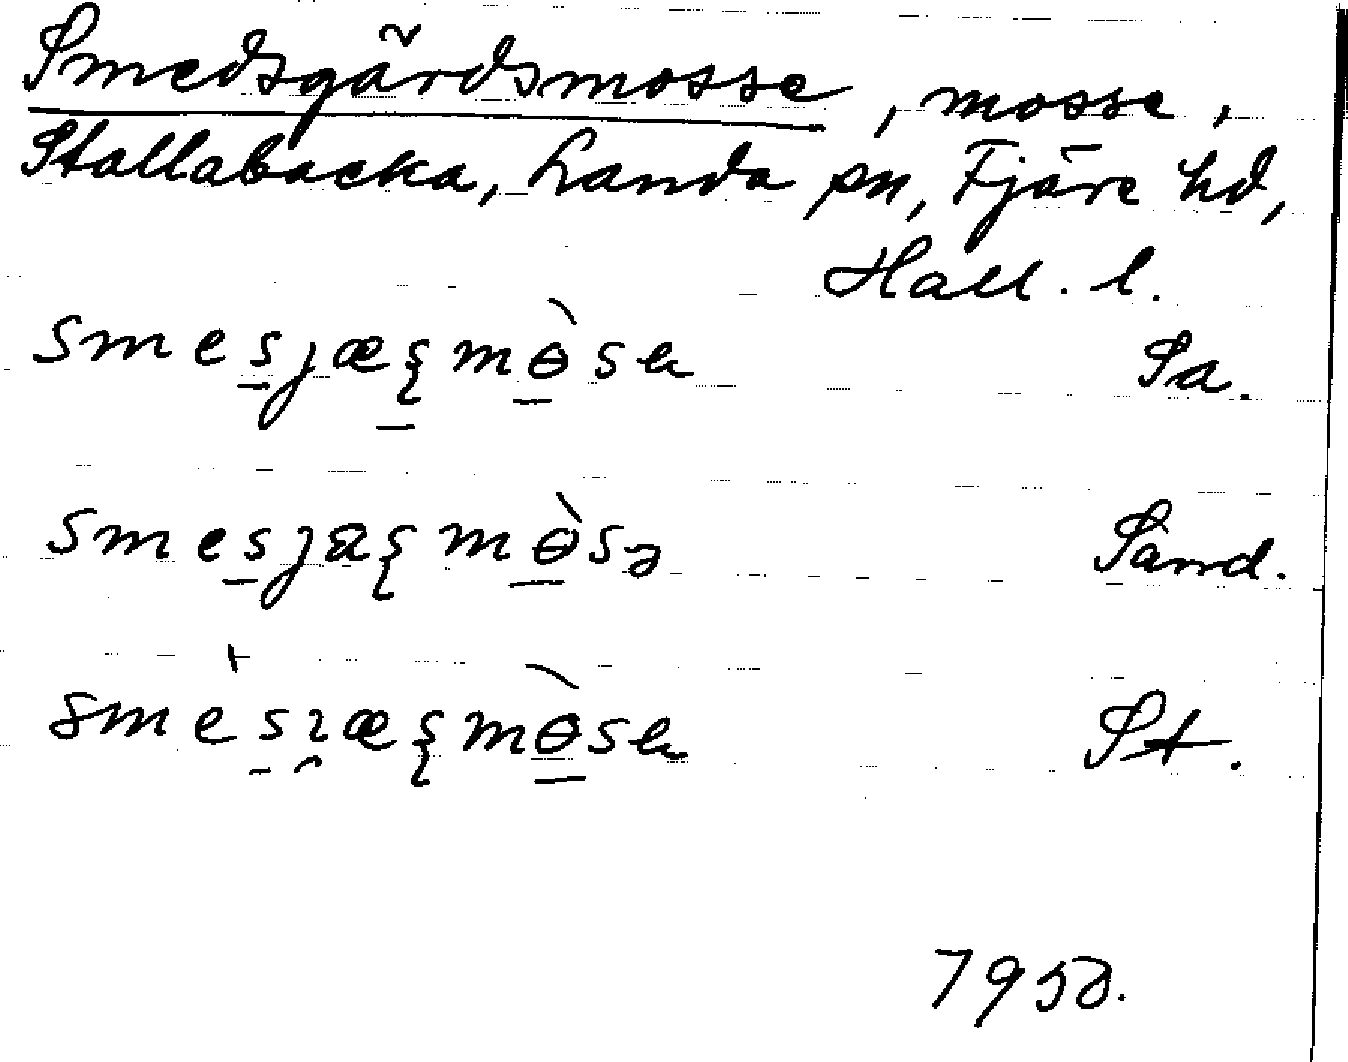 Smedsgårdsmosse, mosse,
Stallabacka, Landa sn, Fjäre hd,
Hall. l.
smesjæşmòsɐ Sa.
smesjaşmòsə Sand.
smèsɿæşmòsɐ St.
7950.